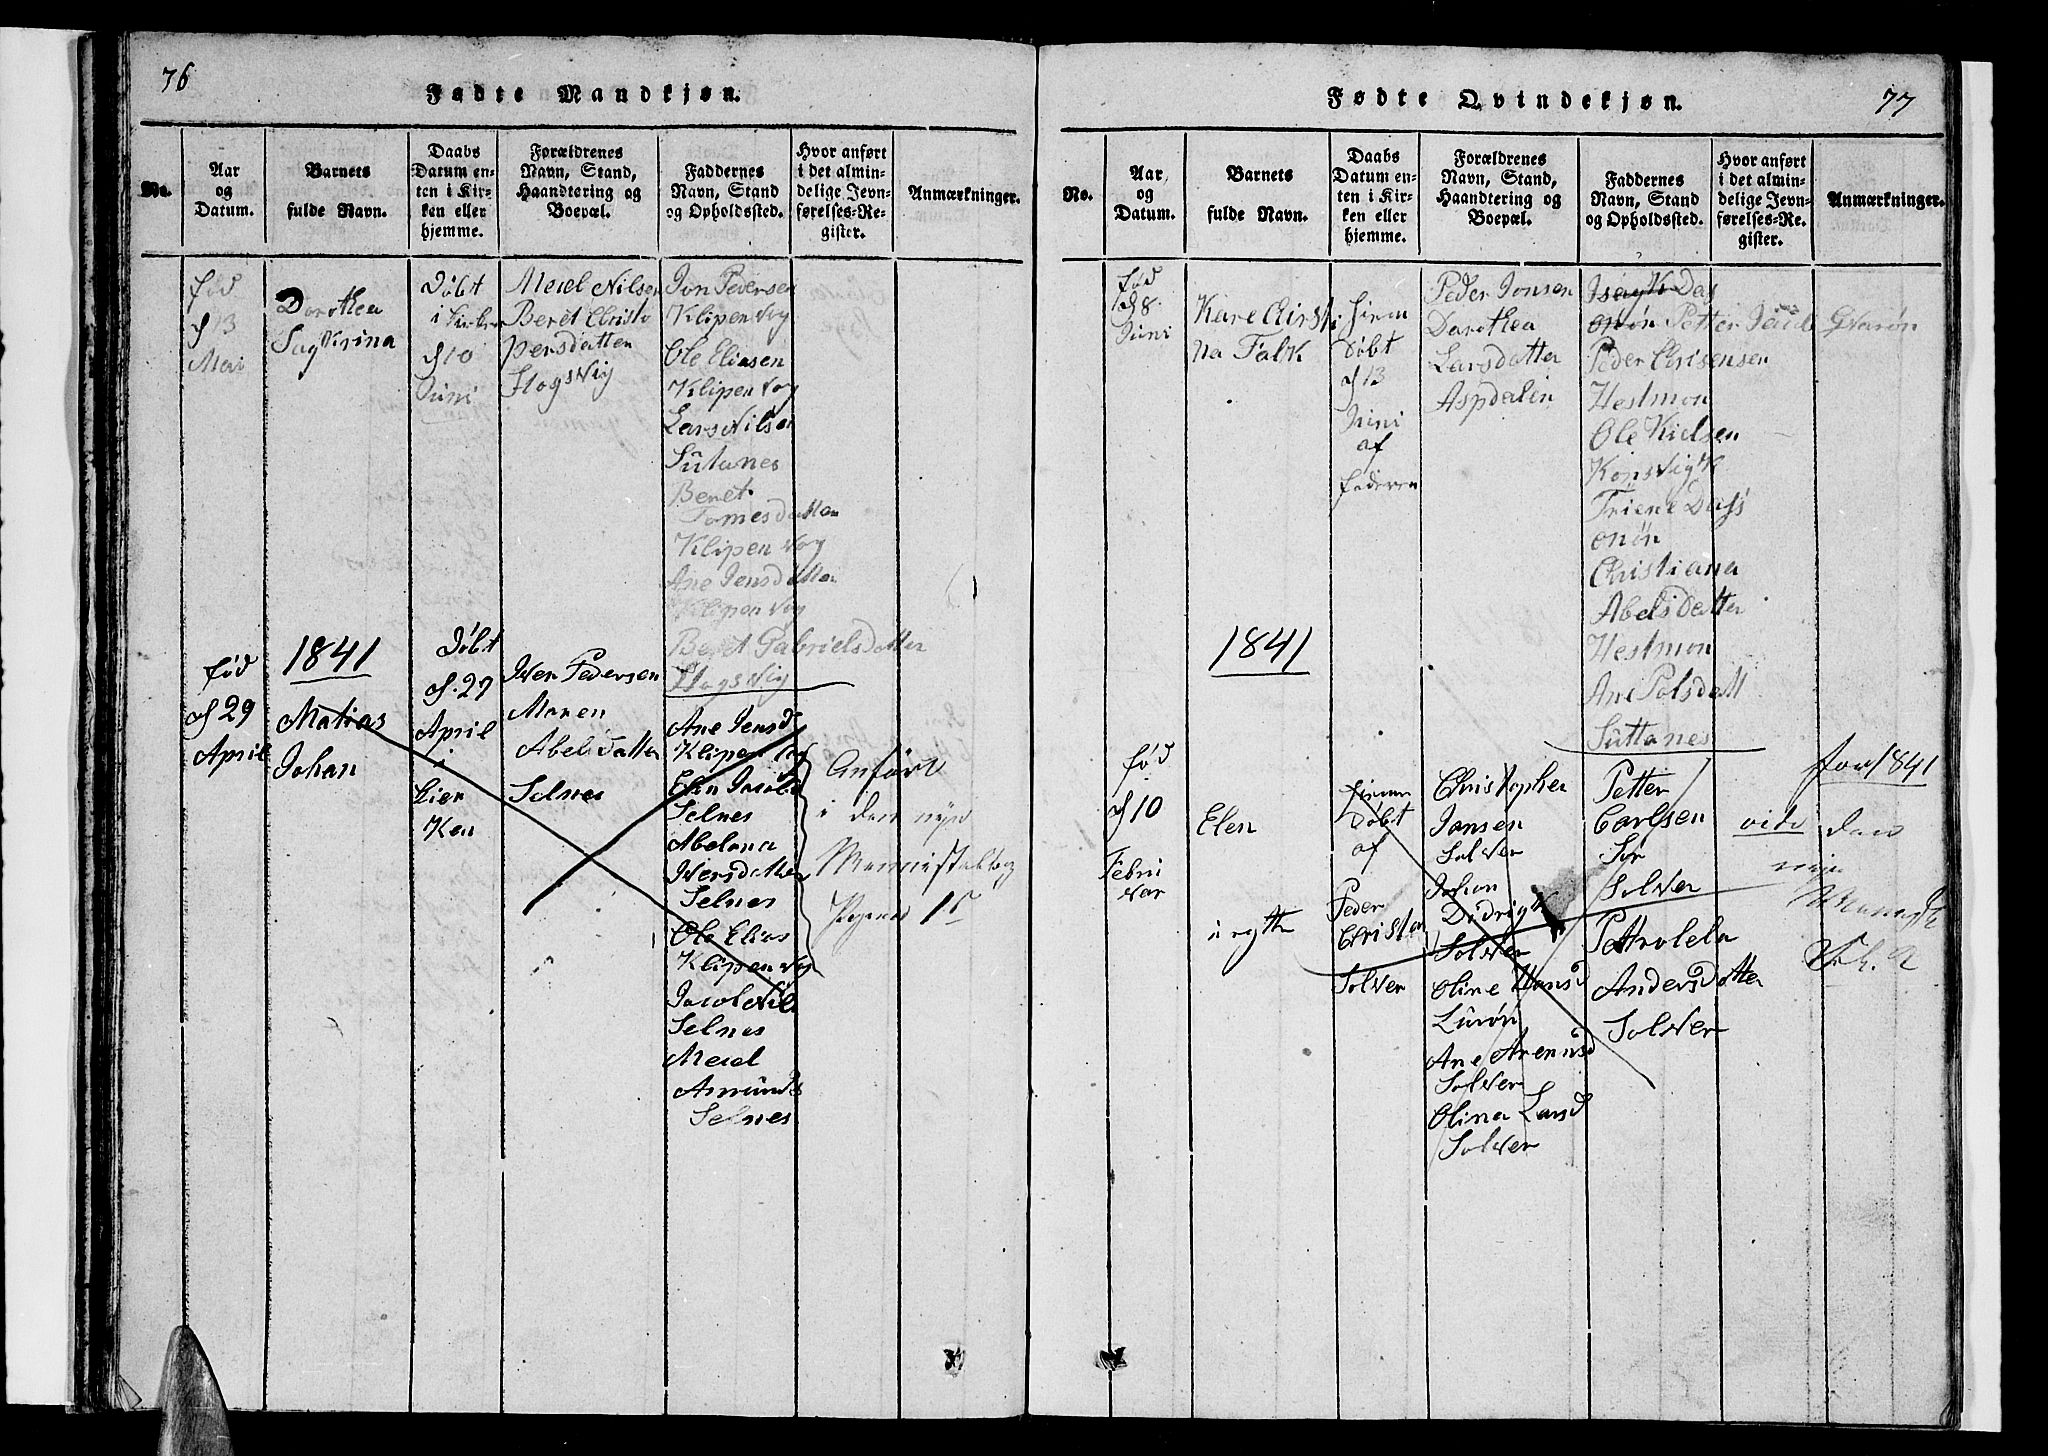 76
Fødte Mandkjøn.
No.
Aar
og
Datum.
Barnets
fulde Navn.
Daabs
Datum en-
ten i Kir-
ken eller
hjemme.
Forældrenes
Navn, Stand,
Haandtering og
Boepæl.
Faddernes
Navn, Stand
og Opholdssted.
Hvor anført
i det almin-
delige Jevn-
førelses-Re-
gister.
Anmærkninger.
fød
d 13
Mai
Dorothea
Døbt
i Kirken
d 10
Juni
Meiel Nilsen
Beret Christo
persdatter
Hogsvig
Jon Pedersen
Klipenvog
Ole Eliasen
Klipenvog
Lars Nilsen
Sutanes
Beret
Tomesdatter
Klipenvog
Ane Jensdatter
Klipenvog
Beret Gabrielsdatter
Hogsvig
1841
fød
d 29
April
Matias
Johan
Døbt
d. 29
April
i
Kier
Ken
Iver Pedersen
Maren
Abelsdatter
Selnes
Ane Jensd
Klipenvog
Elen Jacobs
Selnes
Abelona
Iversdatter
Selnes
Ole Elias
Klipenvog
Jacob Nils
Selnes
Meiel
Asmunds
Selnes
Anført
i den nye
Ministerialbog
Pagina 15
77
Fødte Qvindekjøn.
No.
Aar
og
Datum.
Barnets
fulde Navn.
Daabs
Datum en-
ten i Kir-
ken eller
hjemme.
Forældrenes
Navn, Stand,
Haandtering og
Boepæl.
Faddernes
Navn, Stand
og Opholdssted.
Hvor anført
i det almin-
delige Jevn-
førelses-Re-
gister.
Anmærkninger.
fød
d 8
Juni
Kare Christi
na Falk
Hiem
Døbt
d 13
Juni
af
Faderen
Peder Jonsen
Dorothea
Larsdatter
Aspdalen
Isayk Das
onøn Petter Gvarøn
Peder Chrisensen
Hestmon
Ole Kielsen
Konsvigk
Triene Dass
onøn
Christiana
Abelsdatter
Hestmon
Ane Polsdatt
Suttanes
1841
fød
d 10
Febru
var
Elen
u ægte
Hiem
Døbt
af
Peder
Christen
Solver
Christopher
Jansen
Solver
Johan
Didrigk
Solver
Oline Hansd
Lurøn
Ane Arentsd
Solver
Olina Larsd
Solver
Petter
Carlsen
Sør
Solver
Pettrolela
Andersdatter
Solver
for 1841
vide den
nye